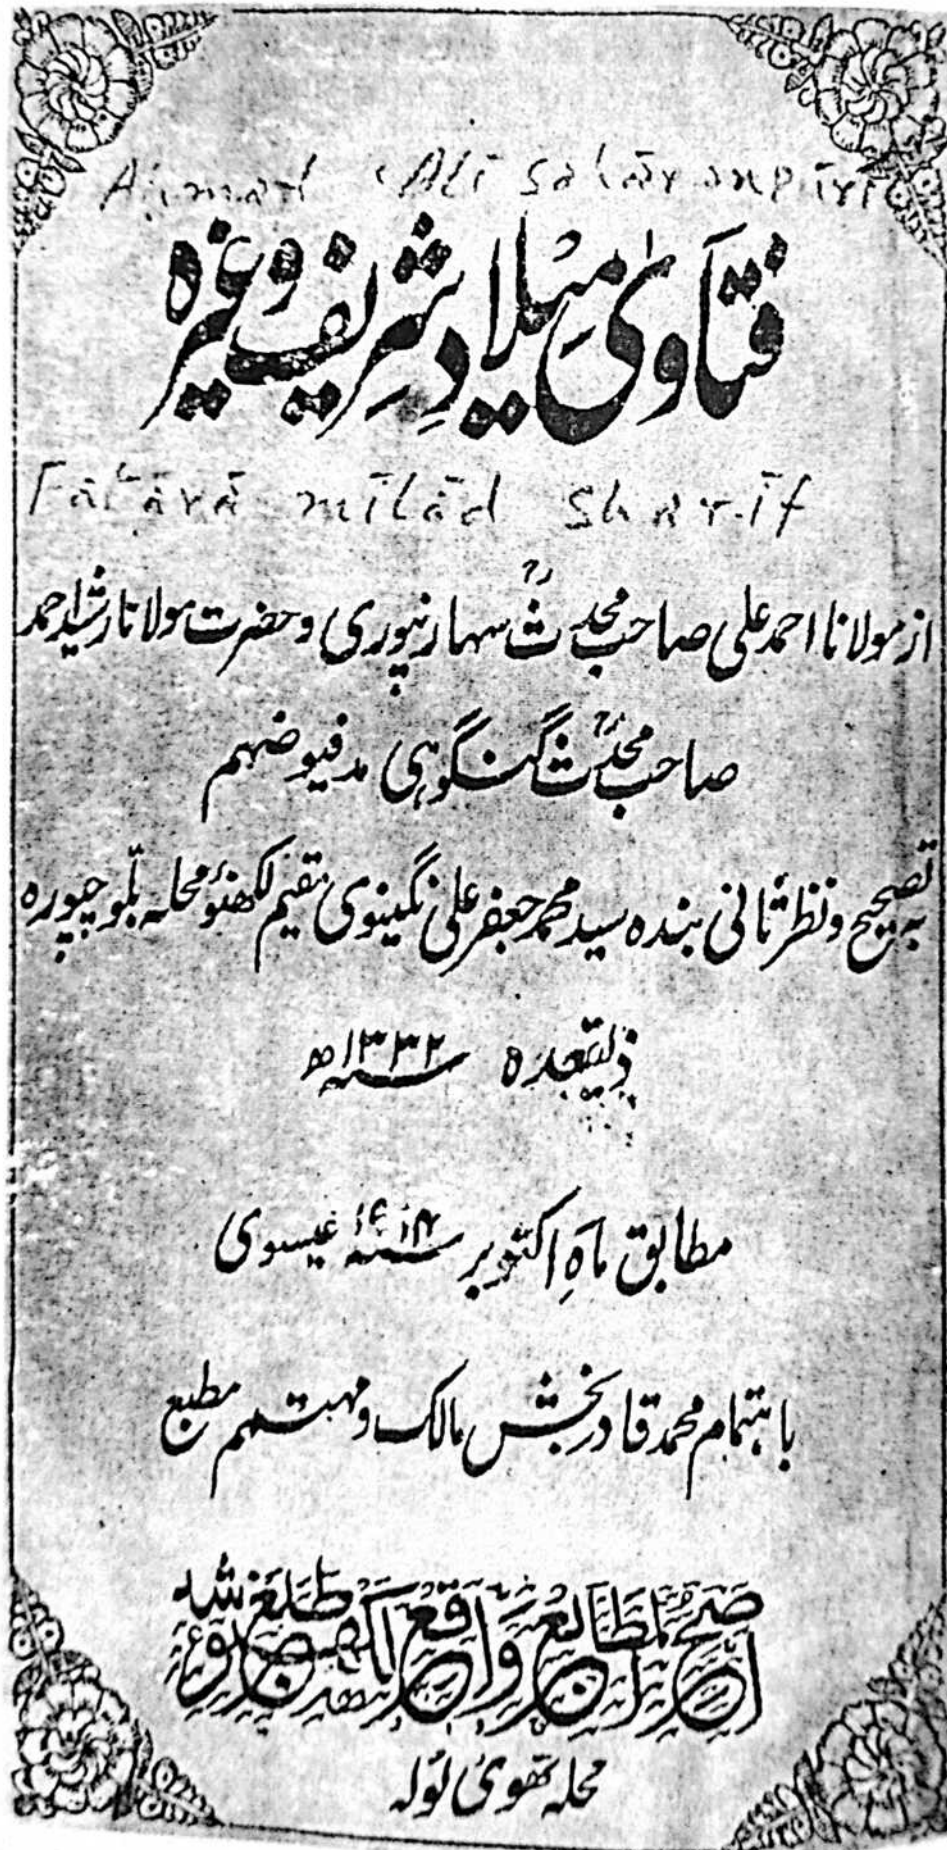 Aḥmad ʻAlī Sahāranpūrī
فتاویٰ میلاد شریف وغیرہ
Fatāvá mīlād sharīf
از مولانا احمد علی صاحب محدثؒ سہارنپوری و حضرت مولانا رشید احمد
صاحب محدثؒ گنگوہی مدفیوضہم
بہ تصحیح و نظر ثانی بندہ سید محمد جعفر علی نگینوی مقیم لکھنؤ محلہ بلوچپورہ
ذیقعدہ ۱۳۳۲ھ
مطابق ماہِ اکتوبر ۱۹۱۴ء عیسوی
باہتمام محمد قادر بخش مالک و مہتمم مطبع
اصح المطابع واقع لکھنؤ طبع شد
محلہ تھوی ٹولہ